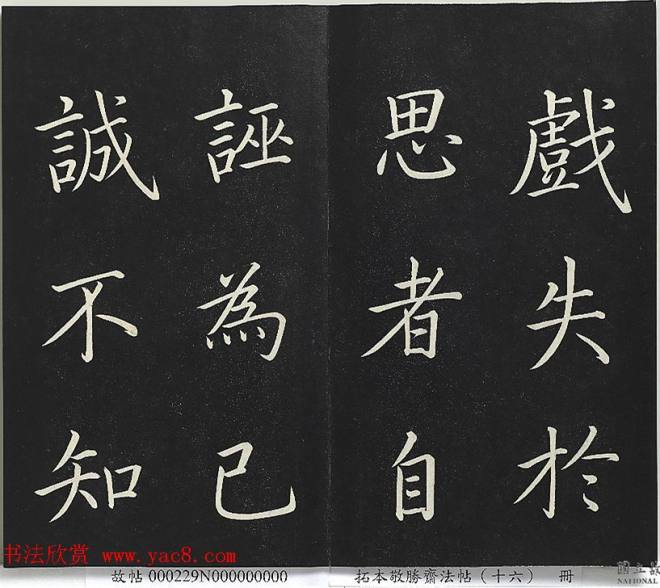 戲失於
思者自
誣為己
誠不知
书法欣赏 www.yac8.com
故帖 000229N000000000
拓本敬勝齋法帖（十六） 冊
國立
NATIONA